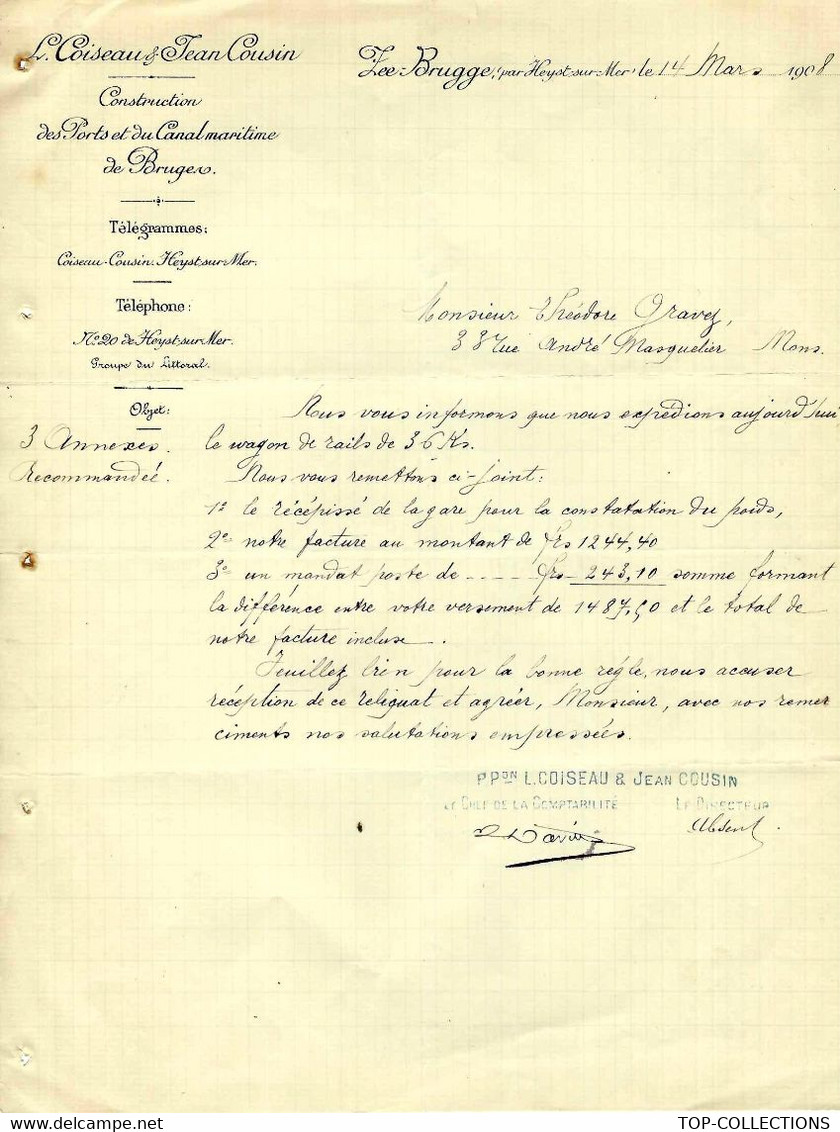 L. Coiseau & Jean Cousin
Construction
des Ports et du Canal maritime
de Bruges.
Télégrammes:
Coiseau-Cousin. Heyst-sur-Mer.
Téléphone:
No. 20 de Heyst-sur-Mer.
Groupe du Littoral.
Objet:
3 Annexes.
Recommandée.
Zee-Brugge, (par Heyst-sur-Mer) le 14 Mars 1908
Monsieur Théodore Gravez,
33 rue André Masquelier Mons.
Nous vous informons que nous expédions aujourd'hui
le wagon de rails de 36 Ks.
Nous vous remettons ci-joint:
1º le récépissé de la gare pour la constatation du poids,
2º notre facture au montant de frs 1244,40
3º un mandat poste de - - - - frs 243,10 somme formant
la différence entre votre versement de 1487,50 et le total de
notre facture incluse.
Veuillez bien pour la bonne règle, nous accuser
réception de ce reliquat et agréer, Monsieur, avec nos remer
ciments nos salutations empressées.
P. PON L. COISEAU & JEAN COUSIN
LE CHEF DE LA COMPTABILITÉ LE DIRECTEUR
Absent
TOP-COLLECTIONS